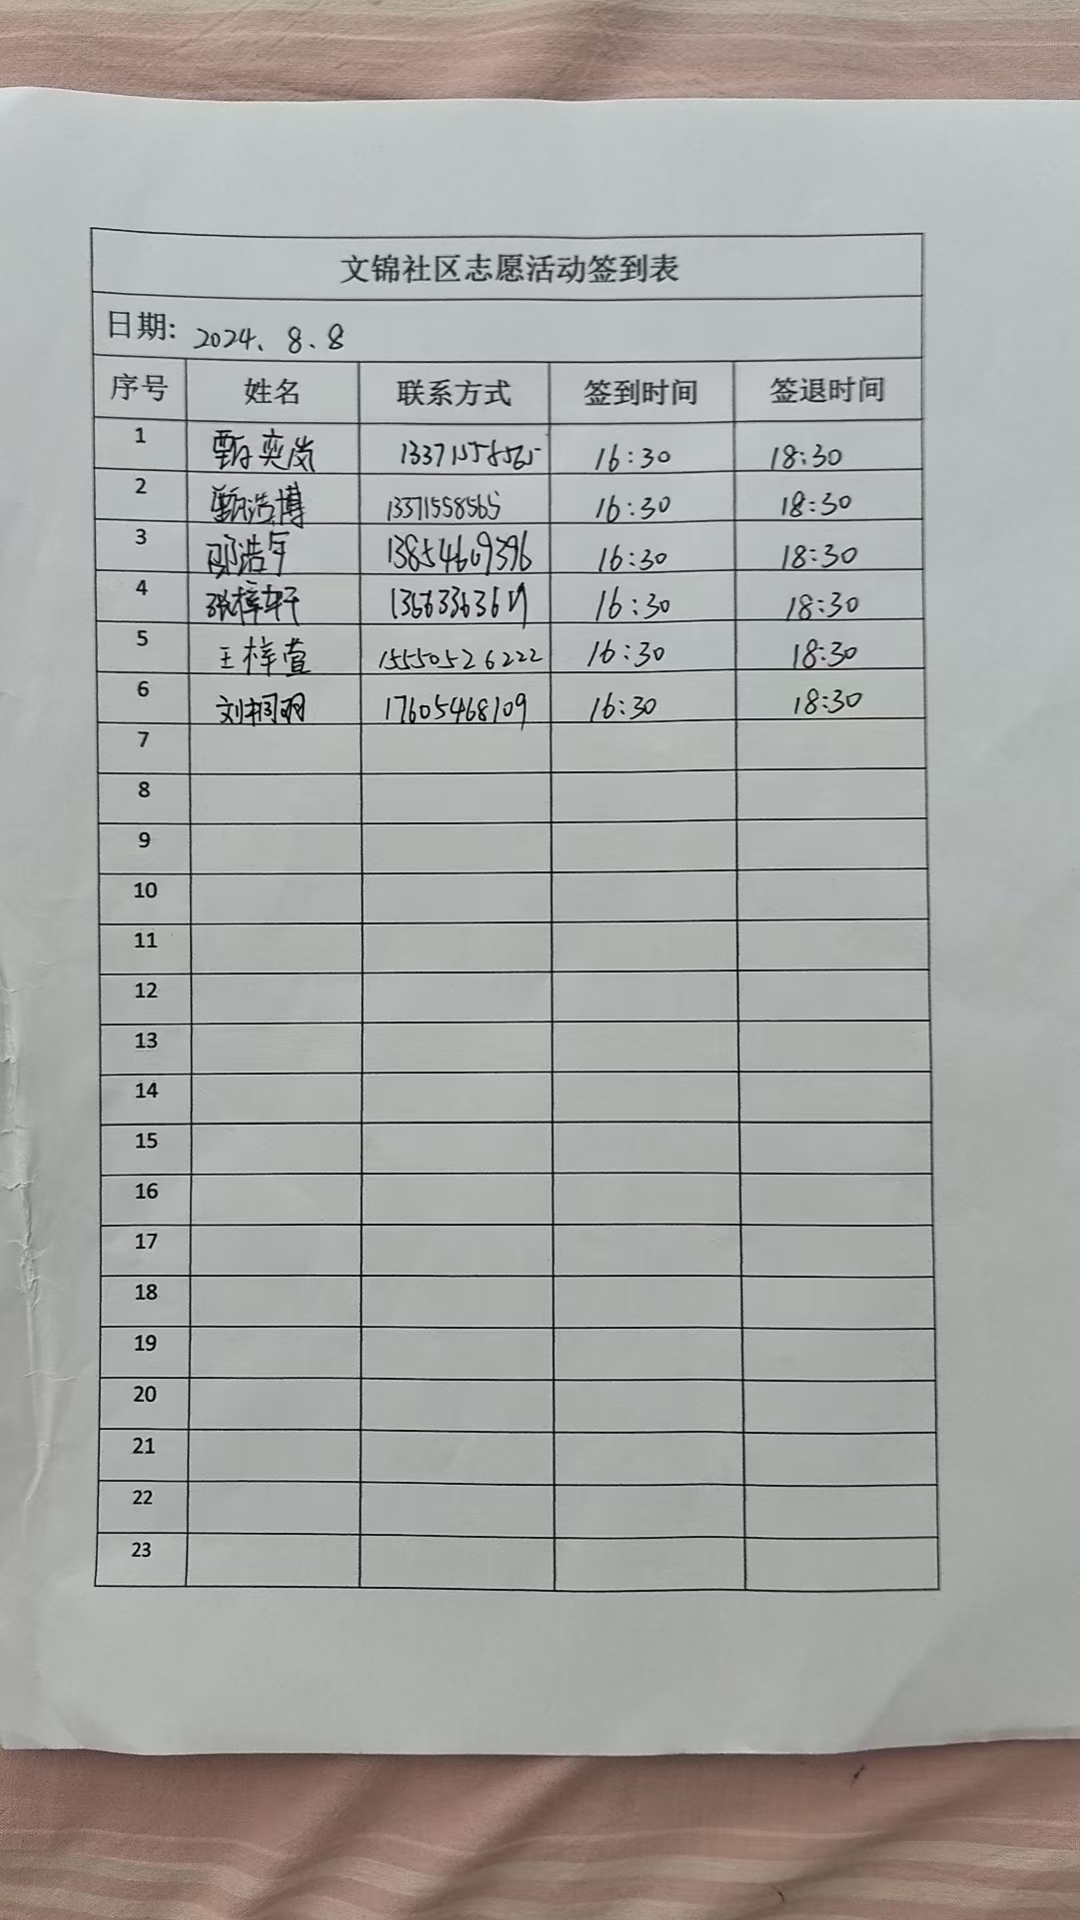 文锦社区志愿活动签到表
日期: 2024、8、8
序号 姓名 联系方式 签到时间 签退时间
1 甄奕岚 13371558565 16:30 18:30
2 甄浩博 13371558565 16:30 18:30
3 浩年 13854609396 16:30 18:30
4 张梓轩 16:30 18:30
5 王梓萱 15550526222 16:30 18:30
6 刘桐羽 17605468109 16:30 18:30
7
8
9
10
11
12
13
14
15
16
17
18
19
20
21
22
23